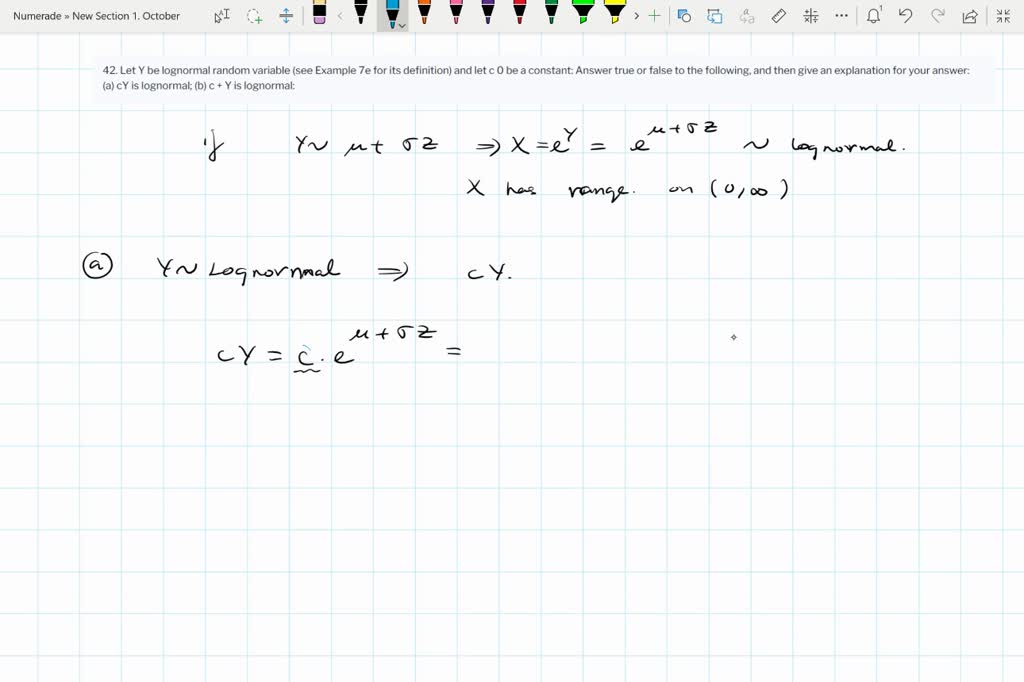 Numerade » New Section 1. October
42. Let Y be lognormal random variable (see Example 7e for its definition) and let c 0 be a constant: Answer true or false to the following, and then give an explanation for your answer:
(a) cY is lognormal; (b) c + Y is lognormal:
if Y ~ μ + σz ⇒ X = e^Y = e^{μ+σz} ~ lognormal.
X has range. on (0,∞)
ⓐ Y ~ Lognormal ⇒ cY.
cY = c · e^{μ+σz} =